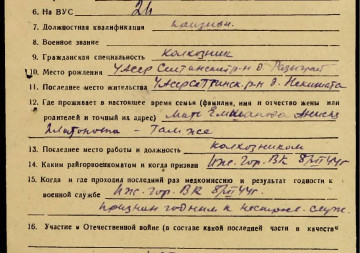 6. На ВУС 26
7. Должностная квалификация
8. Военное звание
9. Гражданская специальность Колхозник
10. Место рождения УАССР р-н д.
11. Последнее место жительства УАССР р-н д.
12. Где проживает в настоящее время семья (фамилия, имя и отчество жены или
родителей и точный их адрес) Мать
Платоновна — там же
13. Последнее место работы и должность колхозником
14. Каким райгорвоенкоматом и когда призван Иж. гор. ВК 8/III 44 г.
15. Когда и где проходил последний раз медкомиссию и результат годности к
военной службе Иж. гор. ВК 8/III 44 г.
признан годным к служ.
16. Участие в Отечественной войне (в составе какой последней части и в качестве